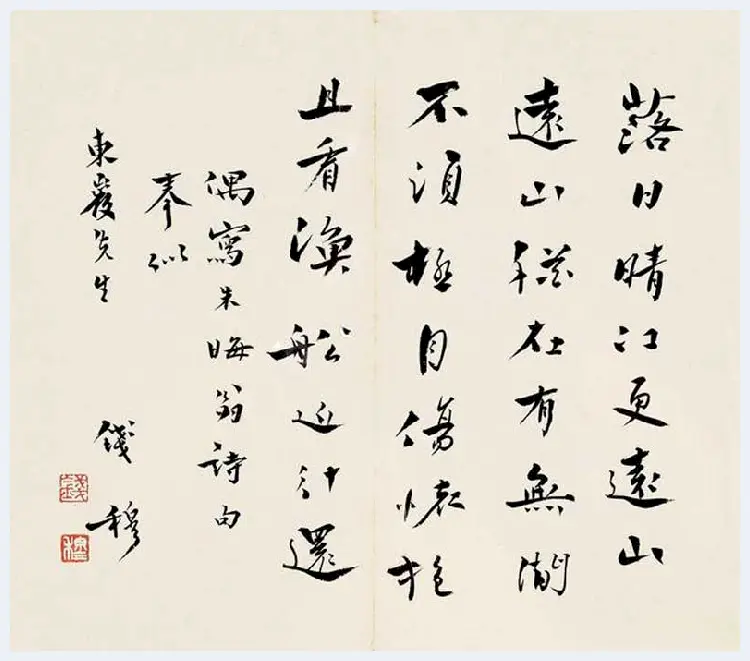 落日晴江更遠山
遠山在有無間
不須極目傷懷抱
且看漁舩近還
偶寫朱晦翁詩句
奉似
東先生
錢穆
錢
穆